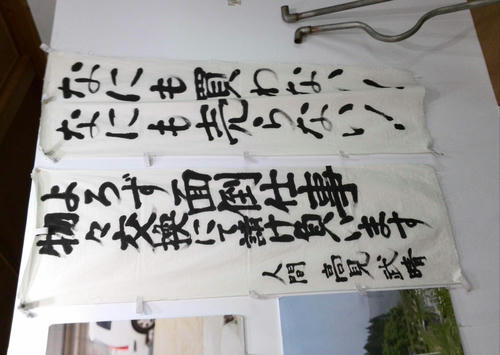 なにも買わない!
なにも売らない!
よろず面倒仕事
物々交換にて請け負います
人間 高見